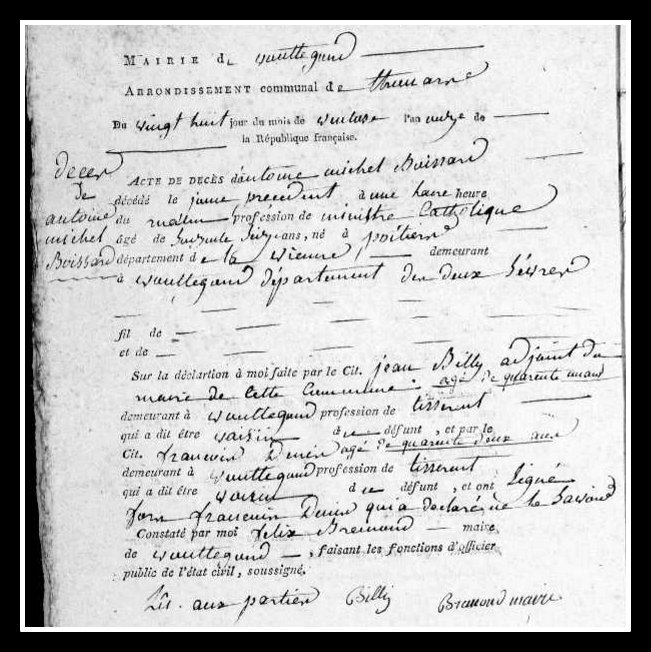 MAIRIE de voulltegond
ARRONDISSEMENT communal de thouarse
Du vingt huit jour du mois de ventose l'an onze de
la République française.
deces
de
antoine
michel
Boissard
ACTE DE DECÈS d'antoine michel Boissard
décédé le jour precedent, à une heure
du matin profession de ministre Catholique
âgé de ans, né à poitiers
département de la vienne, demeurant
à voulltegond département des deux Sèvres
fil de
et de
Sur la déclartion à moi faite par le Cit. jean Billy adjoint du
maire de Cette Commune agé de quarente
demeurant à voulltegond profession de tisserent
qui a dit être voisin du défunt, et par le
Cit. francoin agé de quarente deux ans
demeurant à voulltegond profession de tisserent
qui a dit être voisin du défunt, et ont Signé
francoin qui a declaré ne le Savoir
Constaté par moi felix Bremond maire
de voulltegond, faisant les fonctions d'officier
public de l'état civil, soussigné.
aux partien Billy Bremond maire